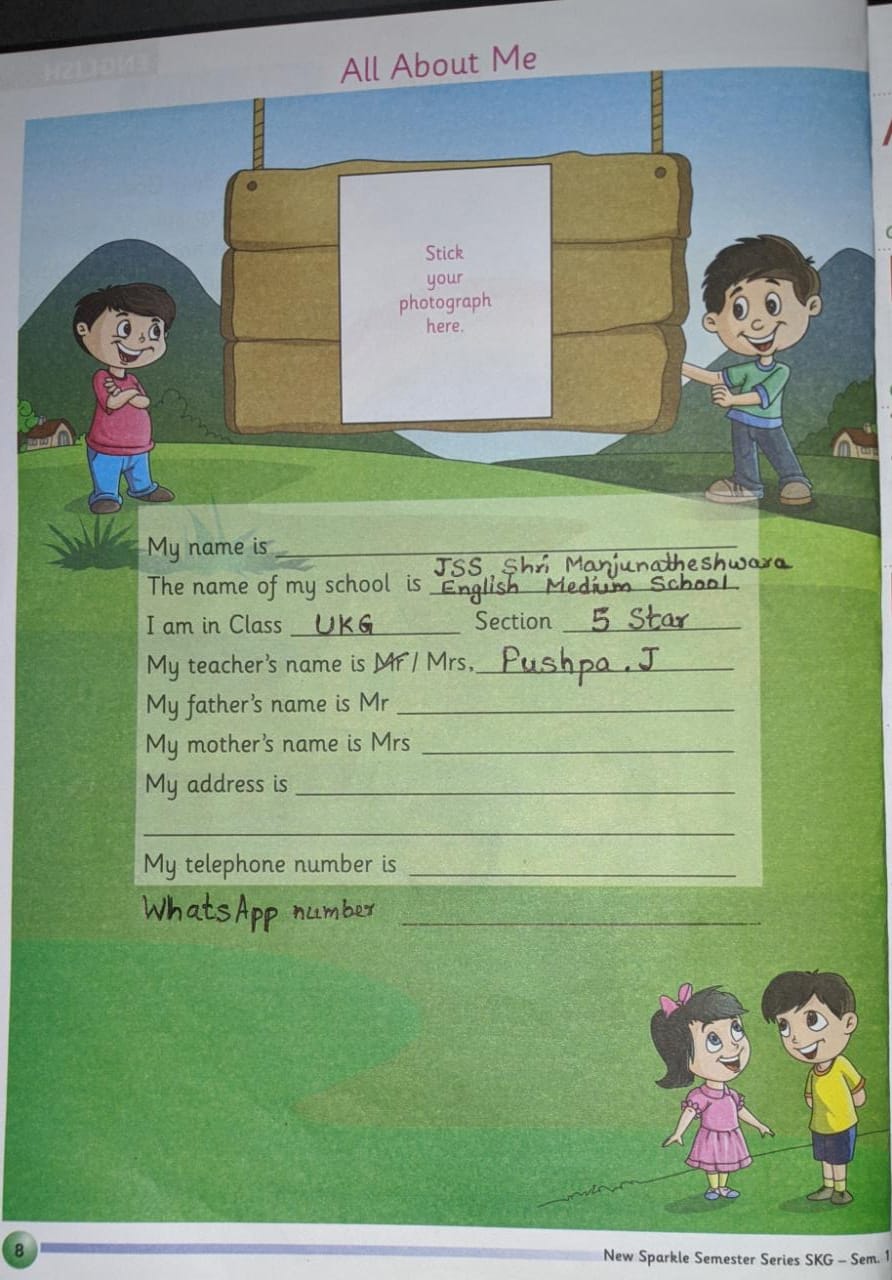 All About Me
Stick
your
photograph
here.
My name is
JSS Shri Manjunatheshwara
The name of my school is English Medium School
I am in Class UKG Section 5 Star
My teacher's name is Mr / Mrs. Pushpa . J
My father's name is Mr
My mother's name is Mrs
My address is
My telephone number is
WhatsApp number
8
New Sparkle Semester Series SKG – Sem. 1